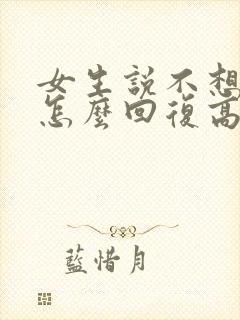 女生說不想
怎麼回復高
藍惜月